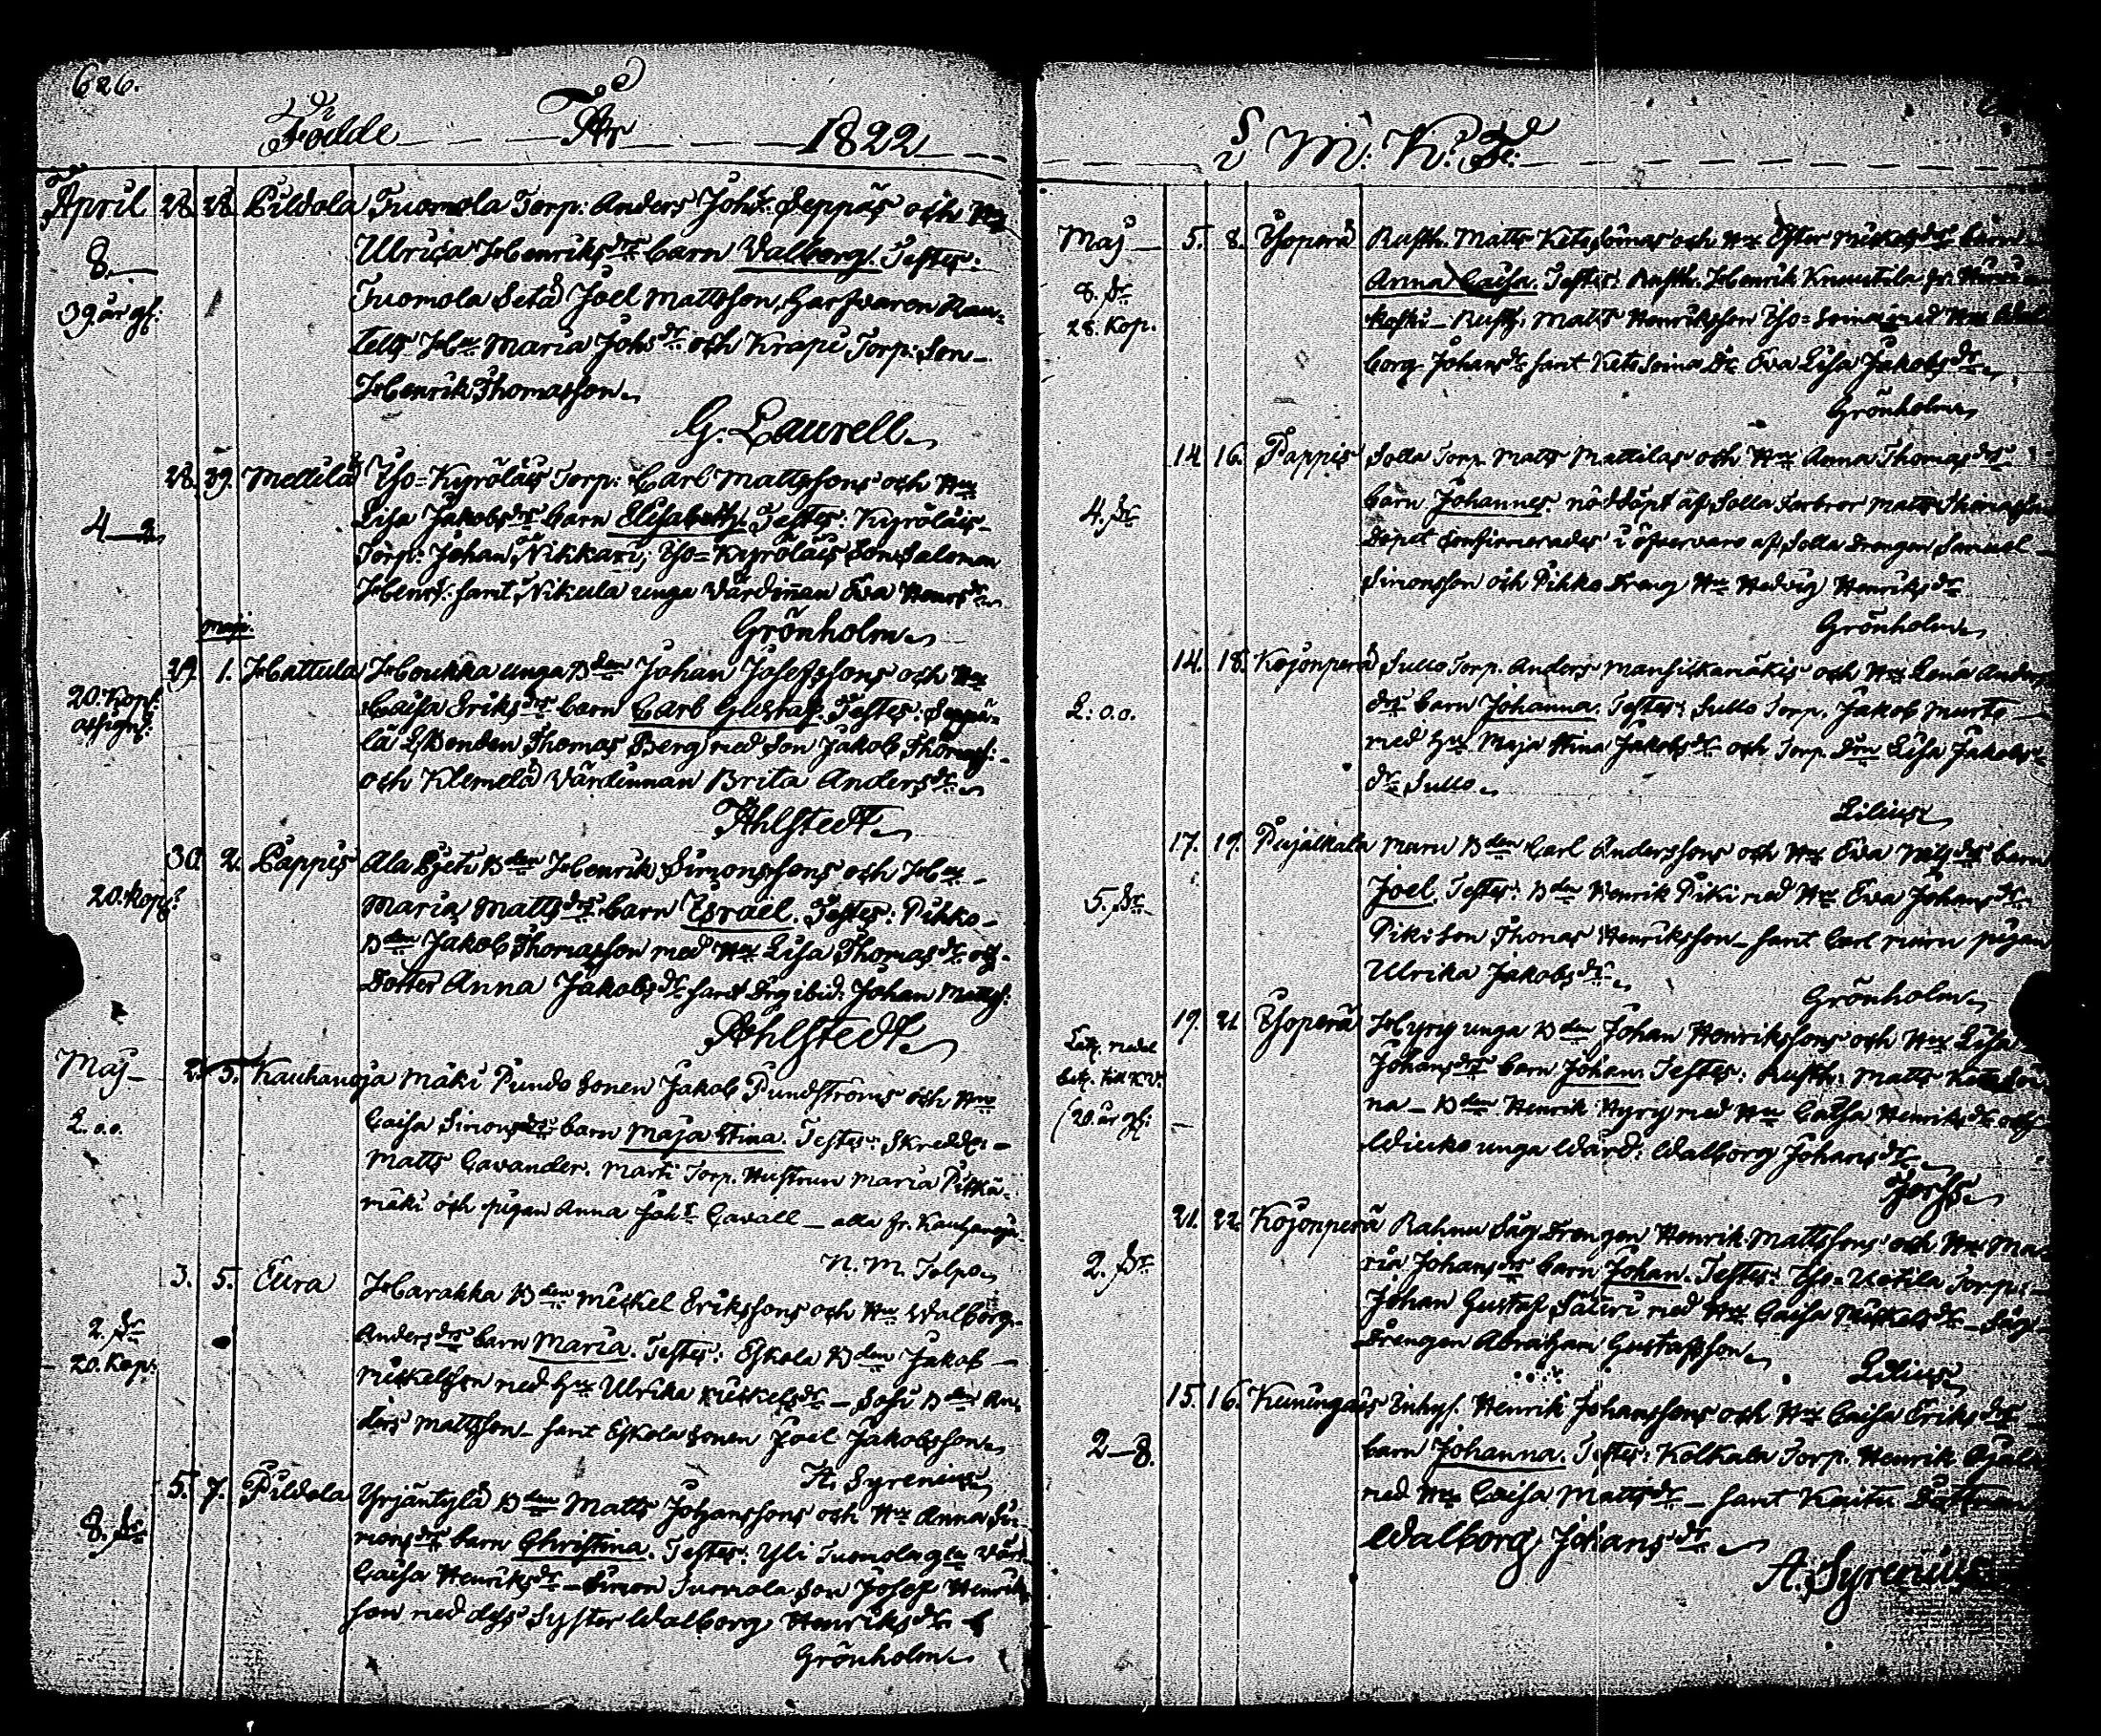 626.
Födde År 1822
April 28. 28. Pildola Tuomola Torp: Anders Joh: Seppäs och Hu
8. Ulrica Henriksdrs barn Valborg. Testes:
39. år gl: Tuomola Setä Joel Mattsson, Garfvaren Rau-
tells Hu Maria Johsdr. och Krapi Torp: Son
Henrik Thomasson
G. Laurell
28. 29. Mellilä Yso-Kyröläis Torp: Carl Mattssons och Hus
4 Lisa Jakobsdrs barn Elisabeth. Testes: Kyröläis
Torp: Johan Nikkari; Yso-Kyröläis Son Salomon
Henr: samt Nikula unga Värdinnan Eva Henrsdr
maji. Grönholm
29. 1. Hattula Houkka unga Bden Johan Josefssons och Hus
20. Kop: Caisa Eriksdrs barn Carl Gustaf. Testes: Seppä-
assign: lä Thomas Berg med Son Jakob Thomas:
och Klemelä Värdinnan Brita Andersdr.
Ahlstedt
30. 2. Pappis Ala Pjeti Bden Henrik Simonssons och Hus
20. kop: Maria Mattsdrs barn Israel. Testes: Pihko
Bden Jakob Thomasson med Hu Lisa Thomasdr och
Dotter Anna Jakobsdr samt Drg ibid: Johan Matts:
Ahlstedt
Maj 2. 5. Kauhanoja Mäki Pundo Sonen Jakob Pundströms och Hus
2. o.o. Caisa Simonsdrs barn Maja Stina. Testes: Skredd:
Matts Cavander. Marti Torp. Hustrun Maria Pitkä-
mäki och pigan Anna Joh: Cavall – alla fr. Kauhanoja
N. M. Tolpo
3. 5. Eura Harakka Bden Mickel Erikssons och Hus Walborg
2. Andersdrs barn Maria. Testes: Eskola Bden Jakob
20. Kop: Mickelsson med Hu Ulrika Mickelsdr – Sosi Bden An-
ders Mattsson – samt Eskola Sonen Joel Jakobsson
A. Syrenius
5. 7. Pildola Yrjäntylä Bden Matts Johanssons och Hus Anna Si-
8. monsdrs barn Christina. Testes: Yli Tuomola gla Värd.
Caisa Henriksdr – Simon Tuomola Son Josef Henriks-
son med dess Syster Walborg Henriksdr
Grönholm
M: K:
Maj 5. 8. Ysoperä Rusth. Matts Ketosoinas och Hus Ester Mickelsdrs barn
8. Anna Caisa. Testes: Rusth. Henrik Knuutila fr.
28. Kop. Rusth: Matts Henriksson Yso-Soina med Hu Wal
borg Johansdr samt Ketosoina Dr. Eva Lisa Jakobsdr
Grönholm
14. 16. Pappis Solla Torp. Matts Mattilas och Hus Anna Thomasdrs
4. barn Johannes. nöddöpt af Solla Farbror Matts Thomasson
Döpet Confirmerades i öfvervaro af Solla Drengen Samuel
Simonsson och Pihko Dreng Hu Hedvig Henriksdr
Grönholm
14. 18. Kojonperä Sullo Torp. Anders och Hus Lena Anders
2: o.o. drs barn Johanna. Testes: Sullo Torp. Jakob Murto
med Hu Maja Stina Jakobsdr och Torp. Lisa Jakobs-
dr Sullo
Lilius
17. 19. Pujalkala Muru Bden Carl Anderssons och Hus Eva barn
5. Joel. Testes: Bden Henrik Piki med Hu Eva Johansdr
Piki Son Thomas Henriksson – samt Carl muru pigan
Ulrika Jakobsdr
Grönholm
19. 21. Ysoperä Hyrsy unga Bden Johan Henrikssons och Hus Lisa
Johansdrs barn Johan. Testes: Rusth: Matts Ketosoi
na – Bden Henrik Hyrsy med Hu Caisa Henriksdr och
20. år gl: unga Wärd: Walborg Johansdr

21. 22. Kojonperä Rahnu Såg Drengen Henrik Mattssons och Hus Ma-
2. ria Johansdrs barn Johan. Testes: Yso-Uotila Torp:
Johan Gustaf med Hu Caisa Mickelsdr – Såg
Drengen Abraham Gustafsson
Lilius
15. 16. Kuningais Inhys. Henrik Johanssons och Hus Caisa Eriksdrs
2 – 8. barn Johanna. Testes: Kolkala Torp. Henrik
med Hu Caisa Mattsdr – samt
Walborg Johansdr
A. Syrenius